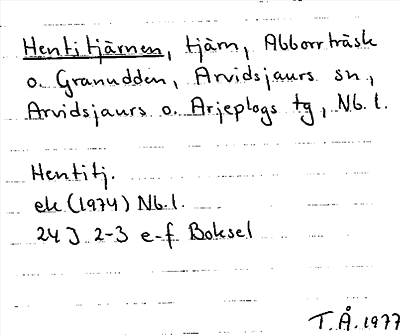 Hentitjärnen, tjärn, Abborrträsk
o. Granudden, Arvidsjaurs sn,
Arvidsjaurs o. Arjeplogs tg, Nb. l.
Hentitj.
ek (1974) Nb. l.
24 J 2-3 e-f Boksel
T. Å. 1977